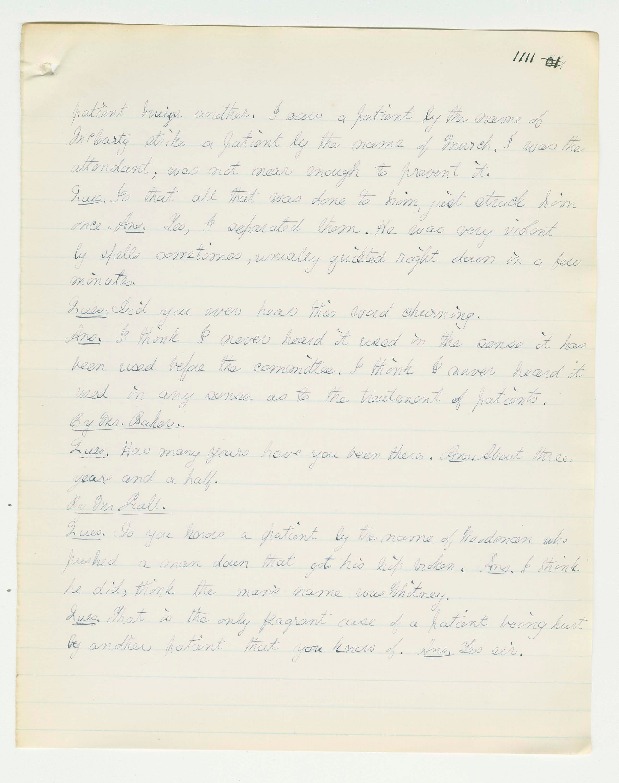 1111
patient another. I saw a patient by the name of
strike a patient by the name of Church. I was the
attendant, was not near enough to prevent it.
Ques. Is that all that was done to him, just struck him
once. Ans. Yes, I separated them. He was very violent
by spells sometimes, usually quieted right down in a few
minutes
Ques. Did you ever hear this word churning.
Ans. I think I never heard it used in the sense it has
been used before the committee. I think I never heard it
used in any sense as to the treatment of patients.
By Mr. Baker.
Ques. How many years have you been there. Ans. About three
year and a half.
By Mr.
Ques. Do you know a patient by the name of who
pushed a man down that got his hip broken. Ans. I think
he did, think the man's name was Whitney.
Ques. That is the only flagrant case of a patient being hurt
by another patient that you know of. Ans. Yes sir.